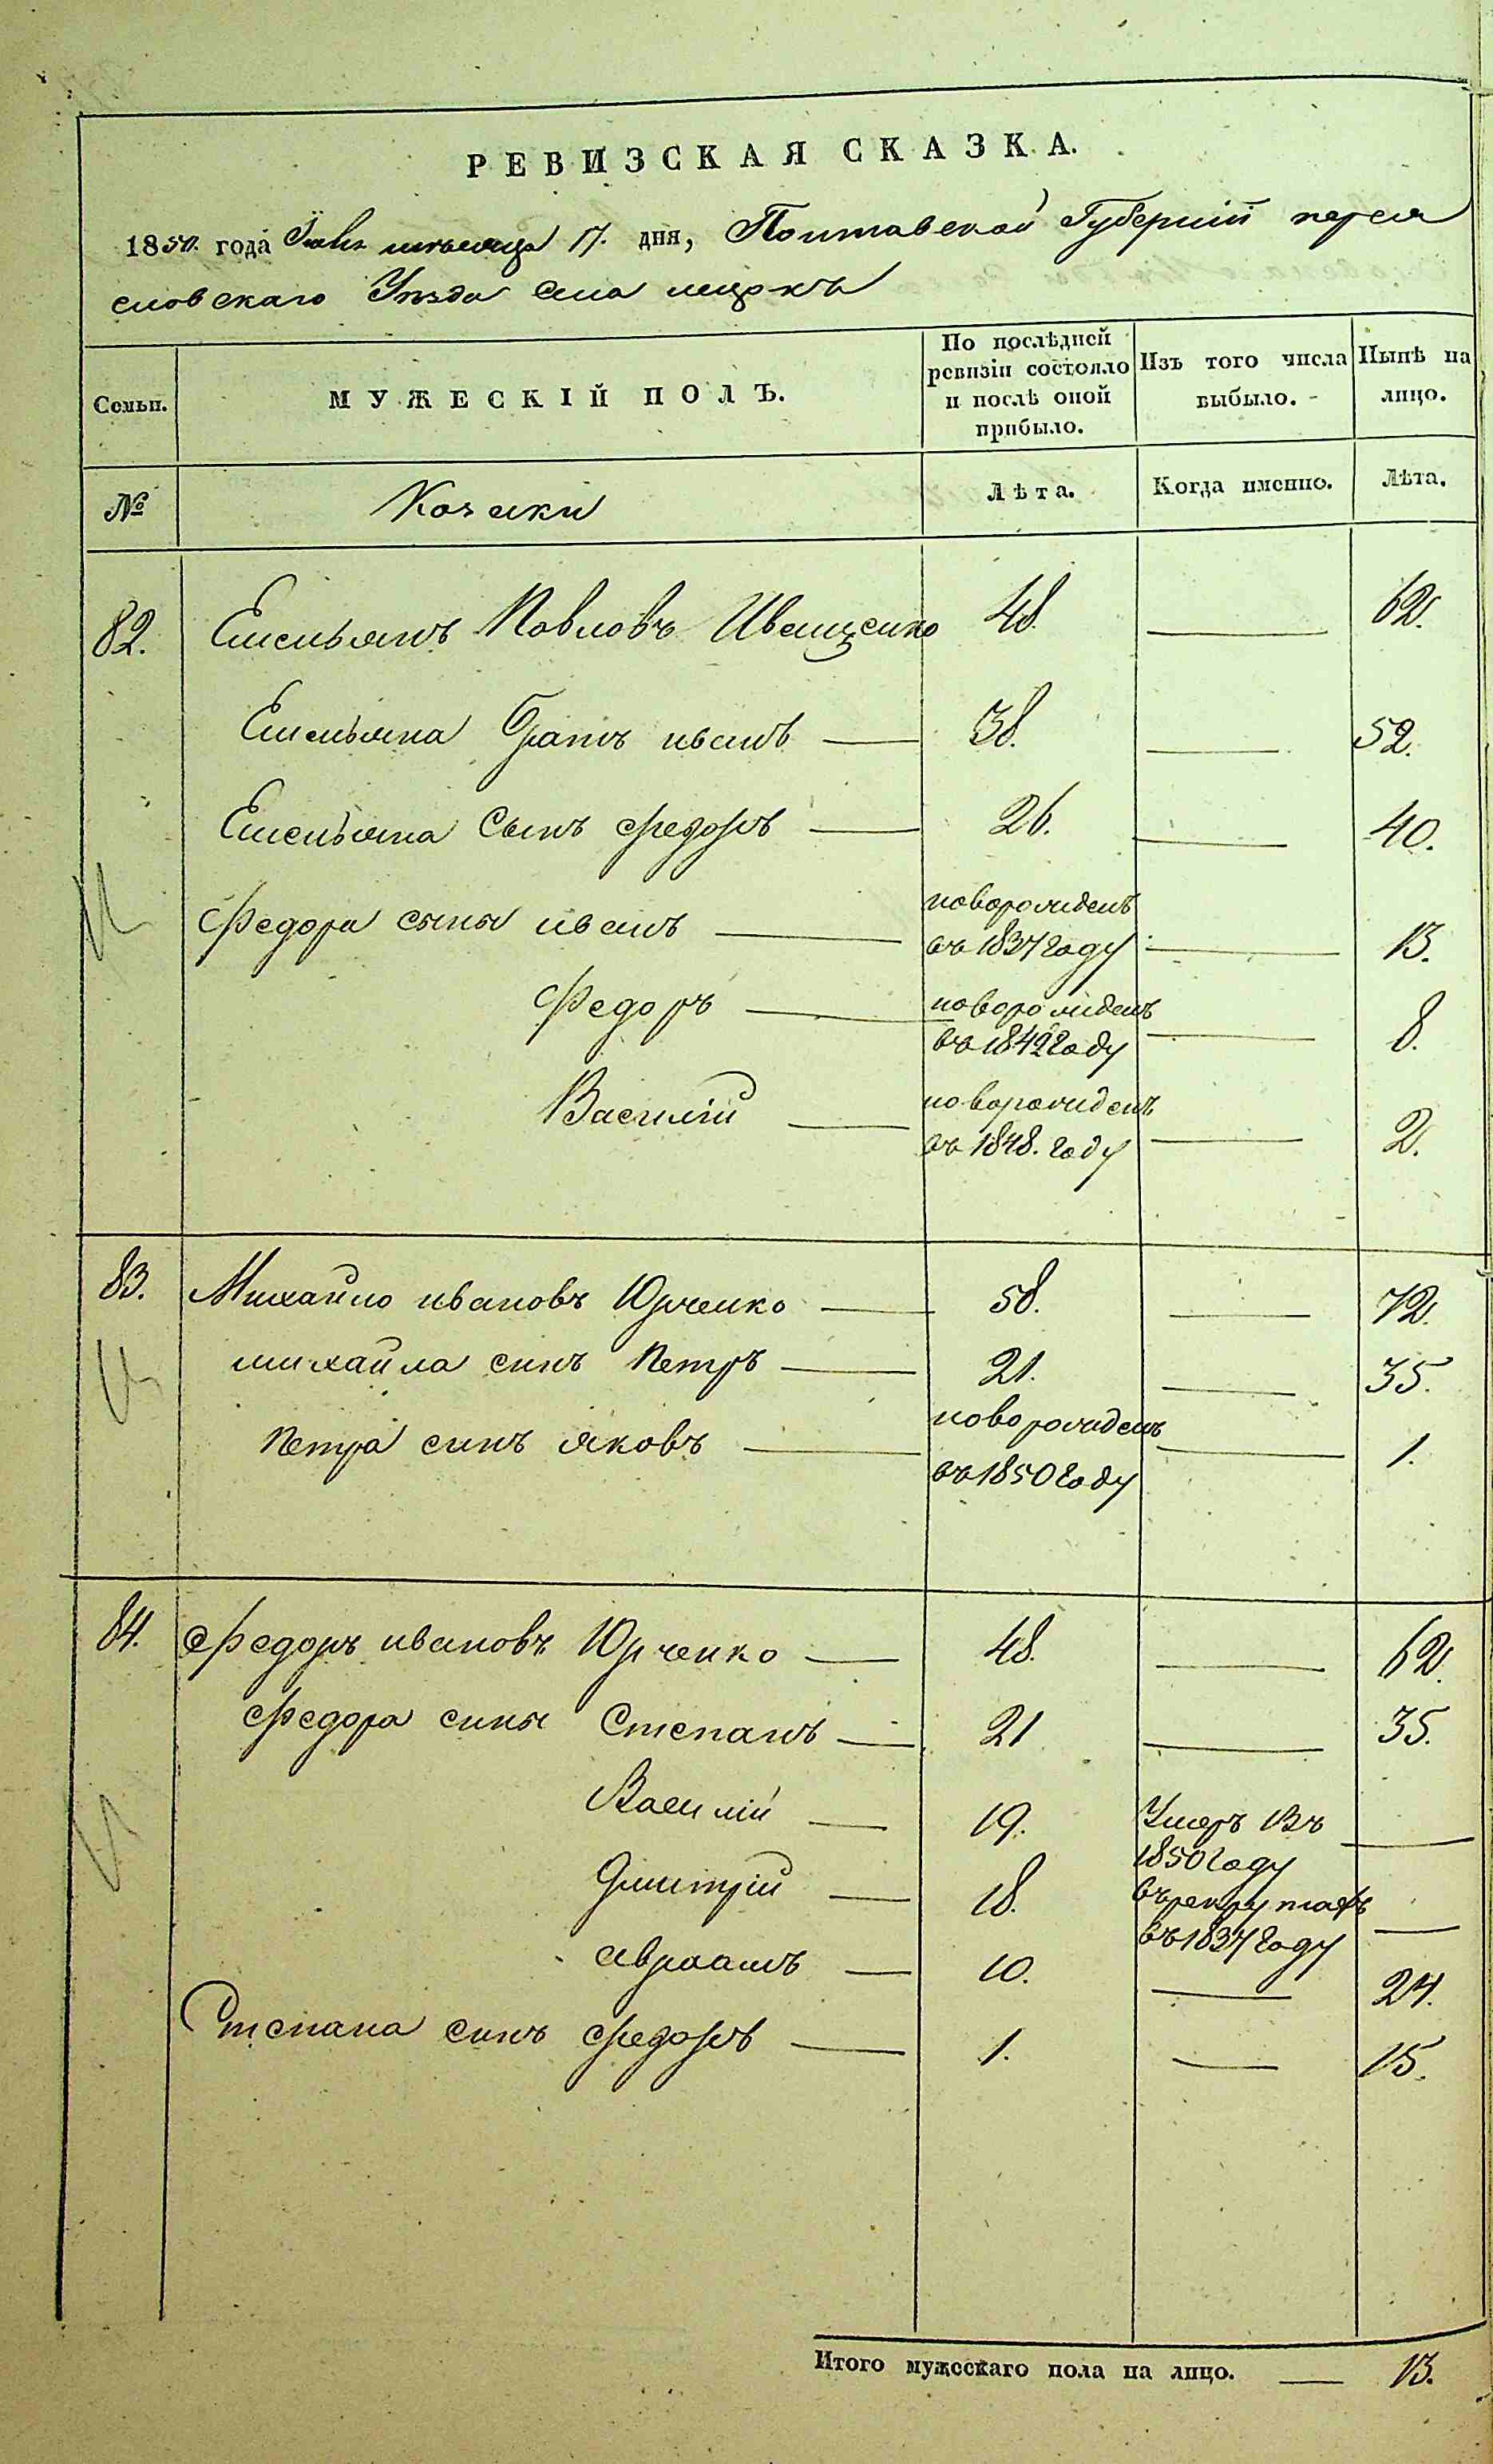 РЕВИЗСКАЯ СКАЗКА.
1850. года Іюня мѣсяца 17. дня, Полтавской Губерніи перея
словскаго Уѣзда Села
Семьи.
МУЖЕСКІЙ ПОЛЪ.
По послѣдней ревизіи состояло и послѣ оной прибыло.
Изъ того числа выбыло.
Нынѣ на лицо.
№
Козаки
Лѣта.
Когда именно.
Лѣта.
82. Емельянъ Павловъ Иващенко 48. — 62.
Емельяна братъ иванъ — 38. — 52.
Емельяна Сынъ федоръ — 26. — 40.
Федора сыны иванъ — новорожденъ
въ 1837 году — 13.
Федоръ — новорожденъ
въ 1842 году — 8.
Василій — новорожденъ
въ 1848. году — 2.
83. Михайло ивановъ Юрченко — 58. — 72.
михайла синъ Петръ — 21. — 35.
Петра синъ яковъ — новорожденъ
въ 1850 году — 1.
84. Федоръ ивановъ Юрченко — 48. — 62.
федора сины Степанъ — 21 — 35.
Василій — 19. Умеръ Въ
1850 году —
Дмитрій — 18. въ рекрутахъ
въ 1837 году —
авраамъ — 10. — 24.
Степана синъ федоръ — 1. — 15.
Итого мужескаго пола на лицо. — 13.